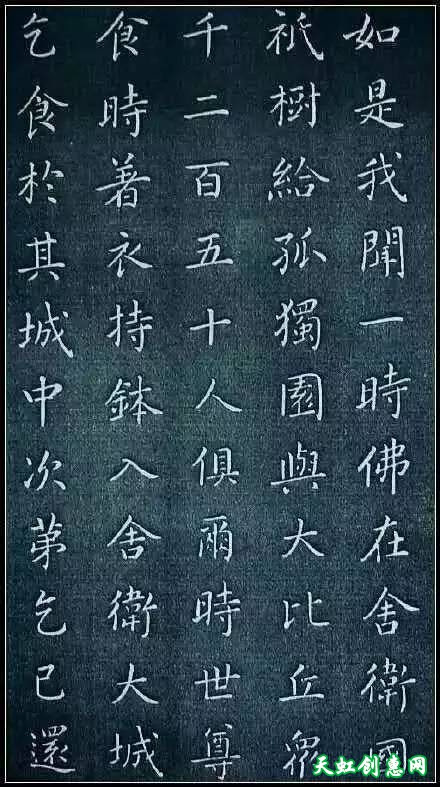 如是我聞一時佛在舍衛國
祇樹給孤獨園與大比丘眾
千二百五十人俱爾時世尊
食時著衣持鉢入舍衛大城
乞食於其城中次苐乞已還
天虹创惠网